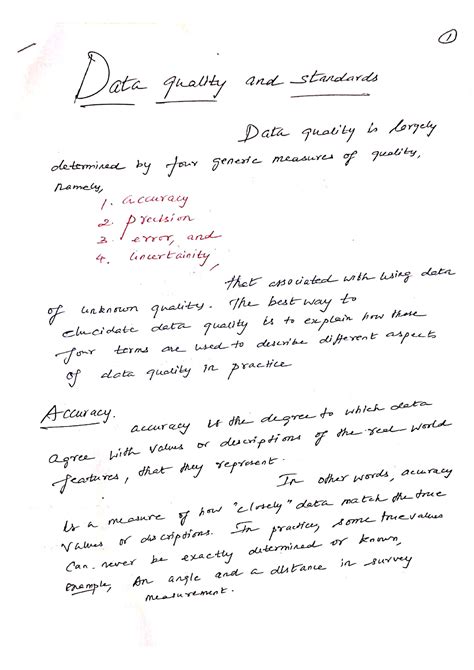 1
Data quality and standards
Data quality is largely
determined by four generic measures of quality,
namely,
1. accuracy
2. precision
3. error, and
4. uncertainity,
that associated with using data
of unknown quality. The best way to
elucidate data quality is to explain how these
four terms are used to describe different aspects
of data quality in practice
Accuracy. accuracy is the degree to which data
agree with values or descriptions of the real world
features, that they represent.
In other words, accuracy
is a measure of how "closely" data match the true
values or discriptions. In practice, some true values
can never be exactly determined or known,
example, An angle and a distance in survey
measurement.